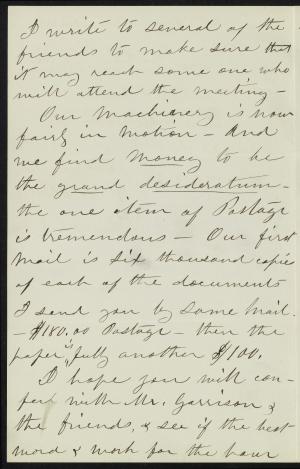 I write to several of the
friends to make sure that
it may reach some one who
will attend the meeting –
Our Machinery is now
fairly in motion – And
we find money to be
the grand desideratum –
the one item of Postage
is tremendous – Our first
Mail is six thousand copies
of each of the documents
I send you by same Mail.
– $180.00 Postage – then the
paper, fully another $100.
I hope you will con-
fer with Mr. Garrison &
the friends, & see if the best
word & work for the hour